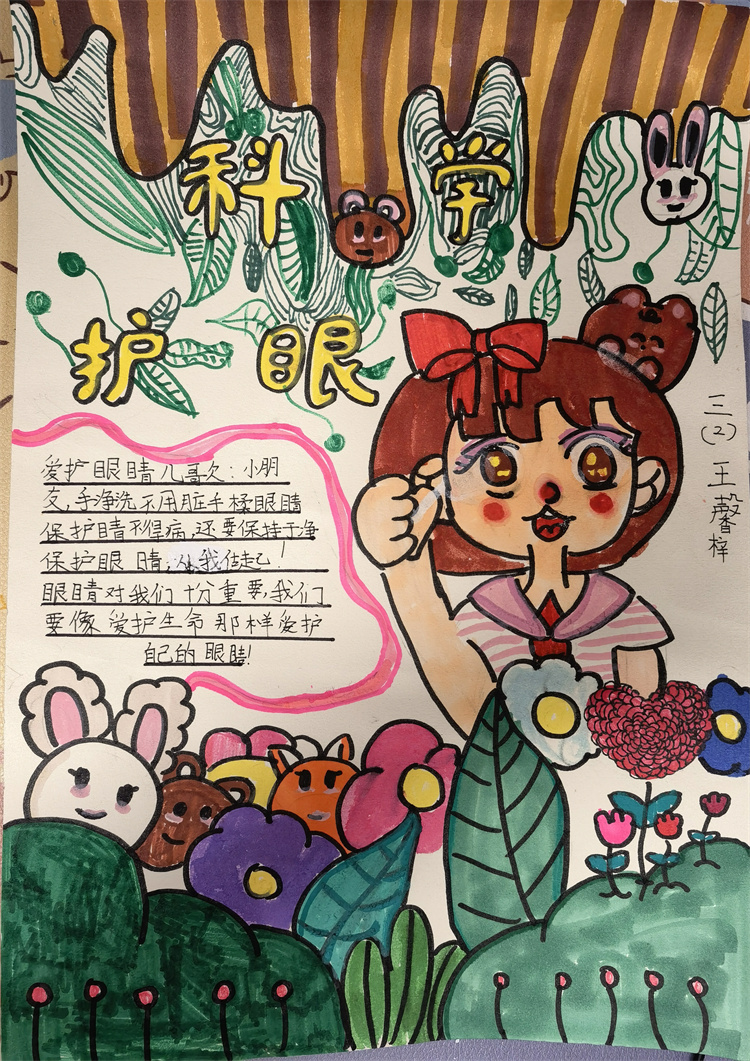 科学
护眼
爱护眼睛儿哥欠：小朋
友，手净洗不用脏手揉眼睛
保护睛不得病，还要保持干净
保护眼睛，从我做起！
眼睛对我们十分重要，我们
要像爱护生命那样爱护
自己的眼睛！
三（2）王馨梓